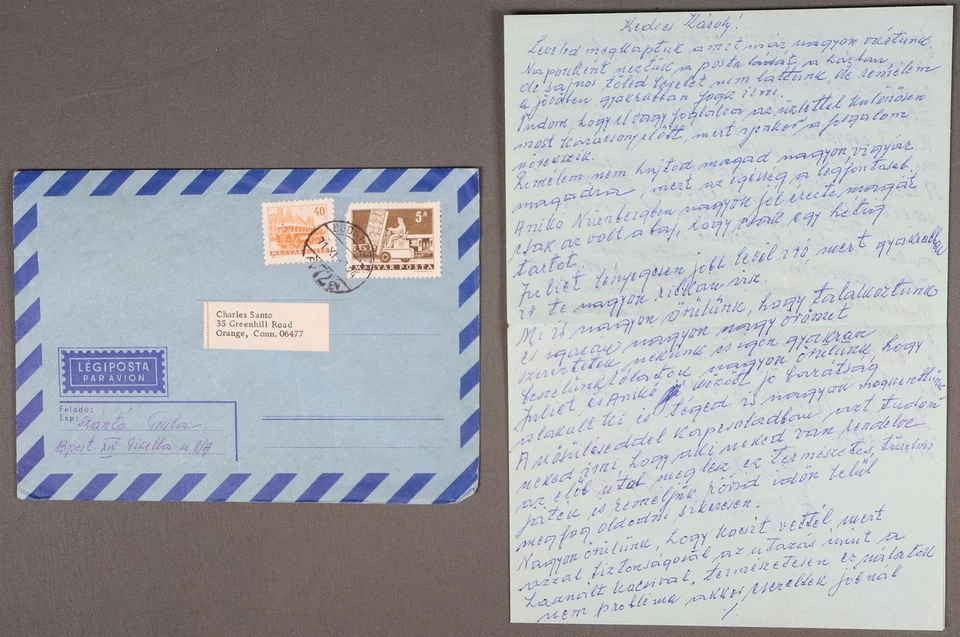 40
MAGYAR POSTA
5 Ft
MAGYAR POSTA
BUDAPEST
71. XI
72
Charles Santo
35 Greenhill Road
Orange, Conn. 06477
LÉGIPOSTA
PAR AVION
Feladó:
Exp:
Szántó Gyula
Bpest XIV Gizella u 8/A
Kedves Károly!
Leveled megkaptuk amit már nagyon vártunk.
Naponként néztük a posta ládát a házban
de sajnos tőled levelet nem láttunk, de remélem
a jövőben gyakrabban fogsz írni.
Tudom, hogy el vagy foglalva az üzlettel különösen
most karácsony előtt, mert ilyenkor a forgalom
növekszik.
Remélem nem hajtod magad nagyon vigyáz
magadra, mert az egésség a legfontosabb.
Anikó Nürnbergben nagyon jól érezte magát
csak az volt a baj, hogy csak egy hétig
tartott.
Juliet lényegesen jobb levél író mert gyakrabban
ír te nagyon ritkán írsz.
Mi is nagyon örülünk, hogy találkoztunk
és igazán nagyon nagy örömet
szereztetek nekünk és igen gyakran
beszélünk rólatok nagyon örülünk, hogy
Juliet és Anikó között jó barátság
alakult ki és Téged is nagyon megszerettünk
A nősüléseddel kapcsolatban azt tudom
neked írni, hogy aki neked van rendelve
az elöl utal meglesz ez természetes, türelmi
játék és reméljük rövid időn belül
meg fog oldodni sikeresen.
Nagyon örülünk, hogy kocsit vettél mert
azzal biztonságosab az utazás mint a
használt kocsival, természetesen ez nálatok
nem probléma akkor cseréltek jobnál